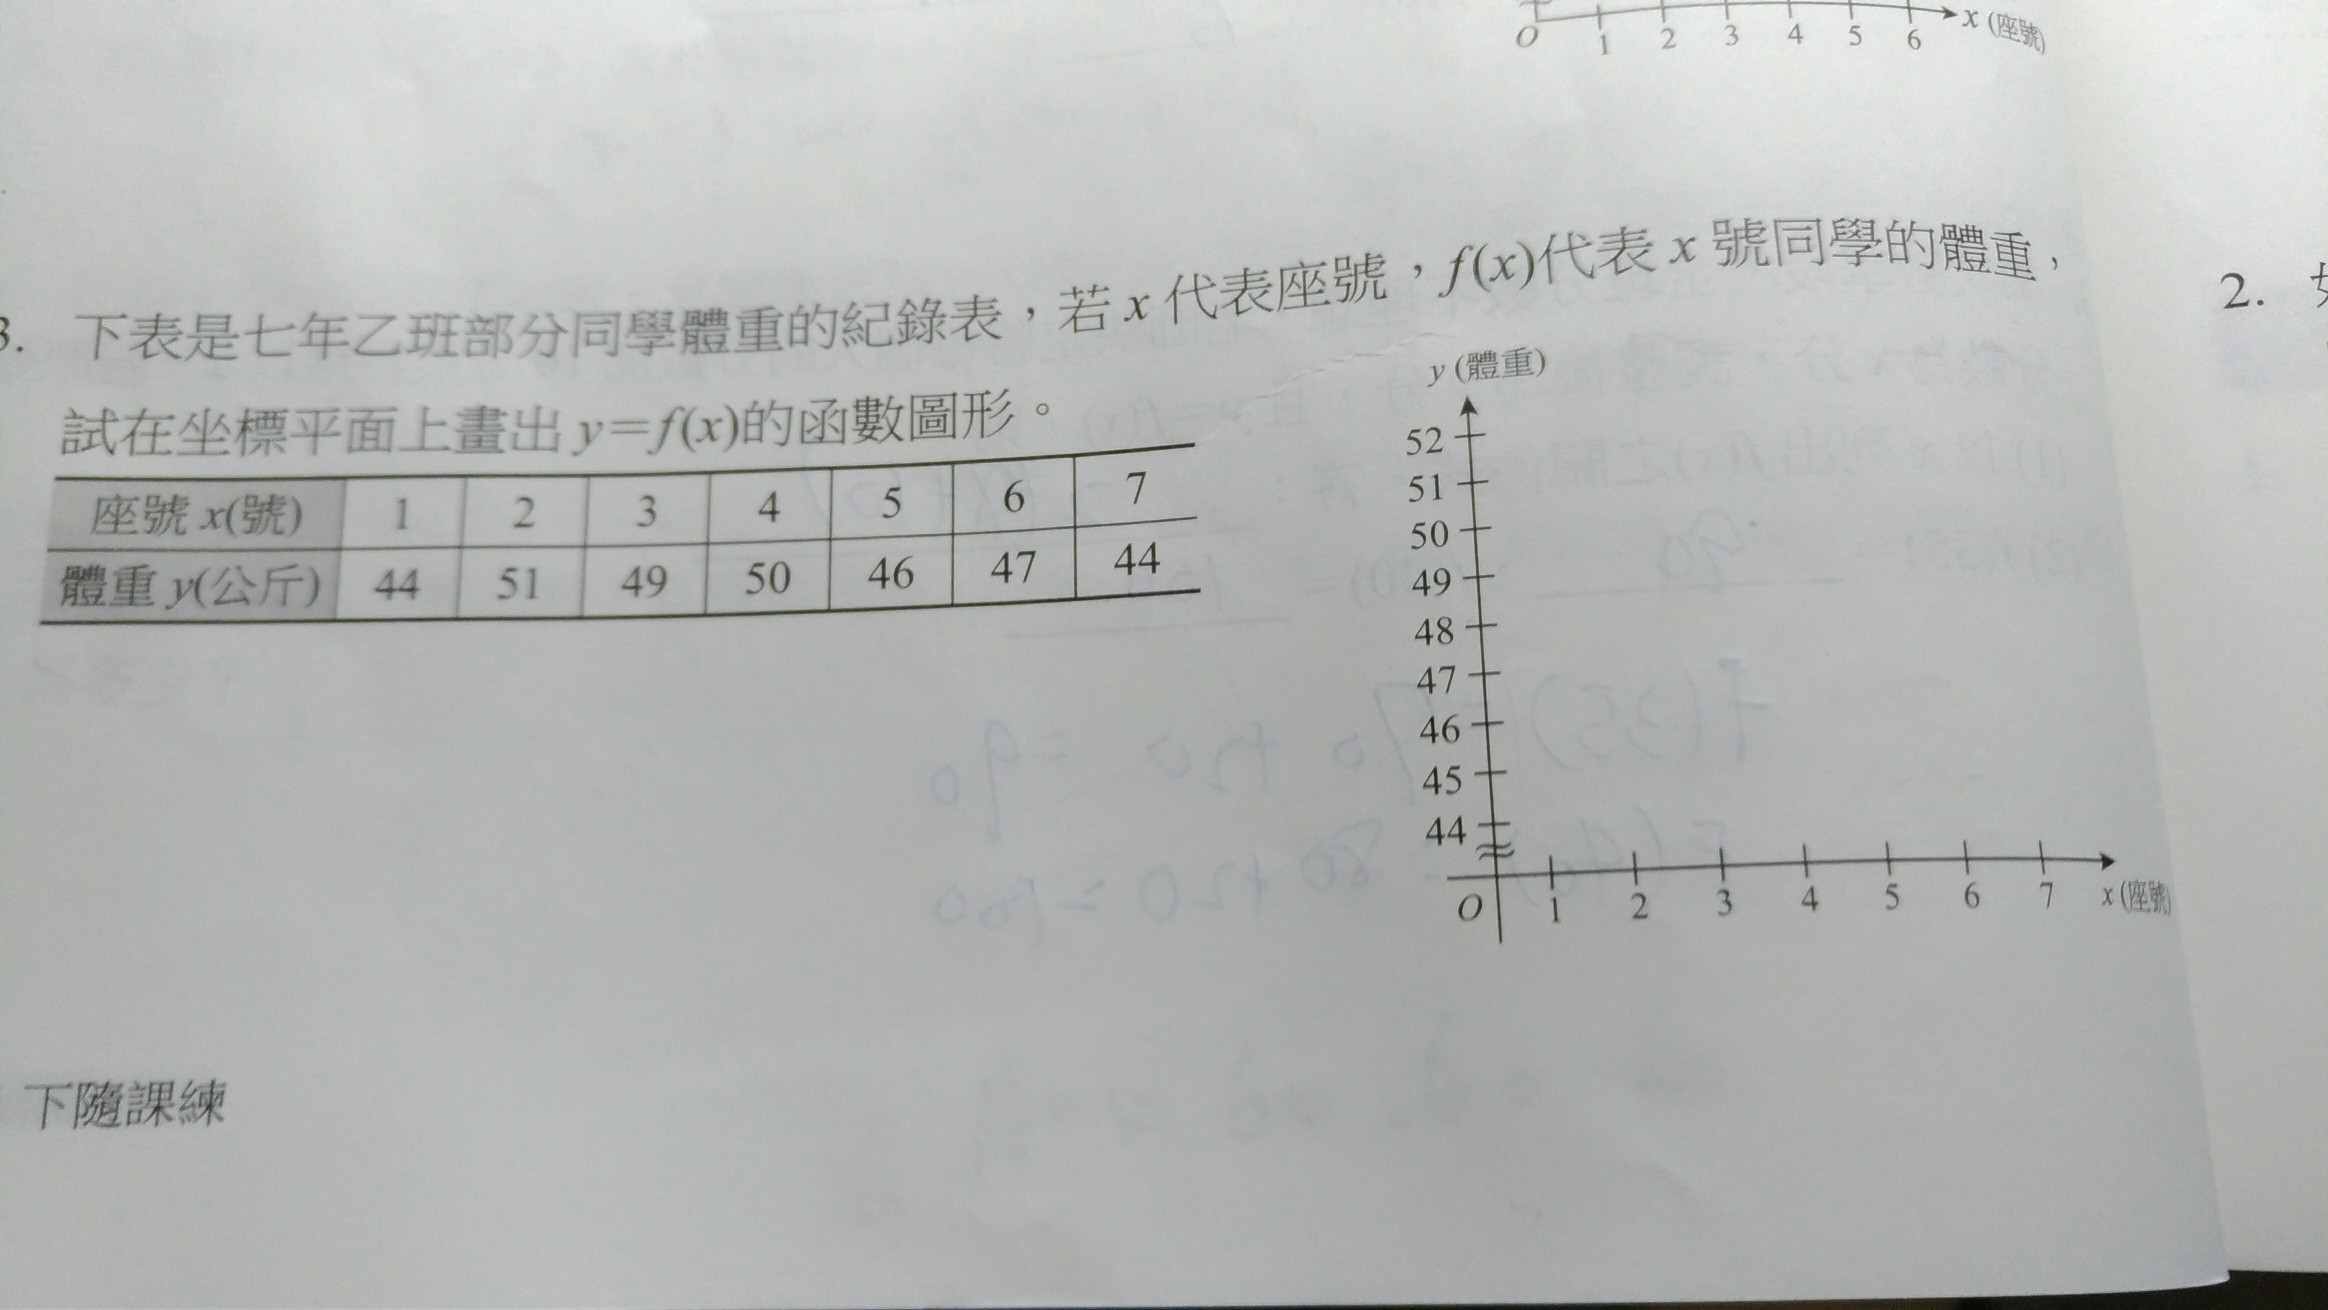 O 1 2 3 4 5 6 x (座號)
3. 下表是七年乙班部分同學體重的紀錄表，若 x 代表座號，f(x)代表 x 號同學的體重，
試在坐標平面上畫出 y＝f(x)的函數圖形。
座號 x(號) 1 2 3 4 5 6 7
體重 y(公斤) 44 51 49 50 46 47 44
y (體重)
52
51
50
49
48
47
46
45
44
O 1 2 3 4 5 6 7 x (座號)
下隨課練
2.